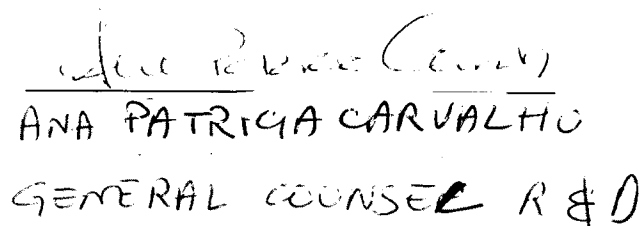 ANA PATRICIA CARVALHO
GENERAL COUNSEL R & D